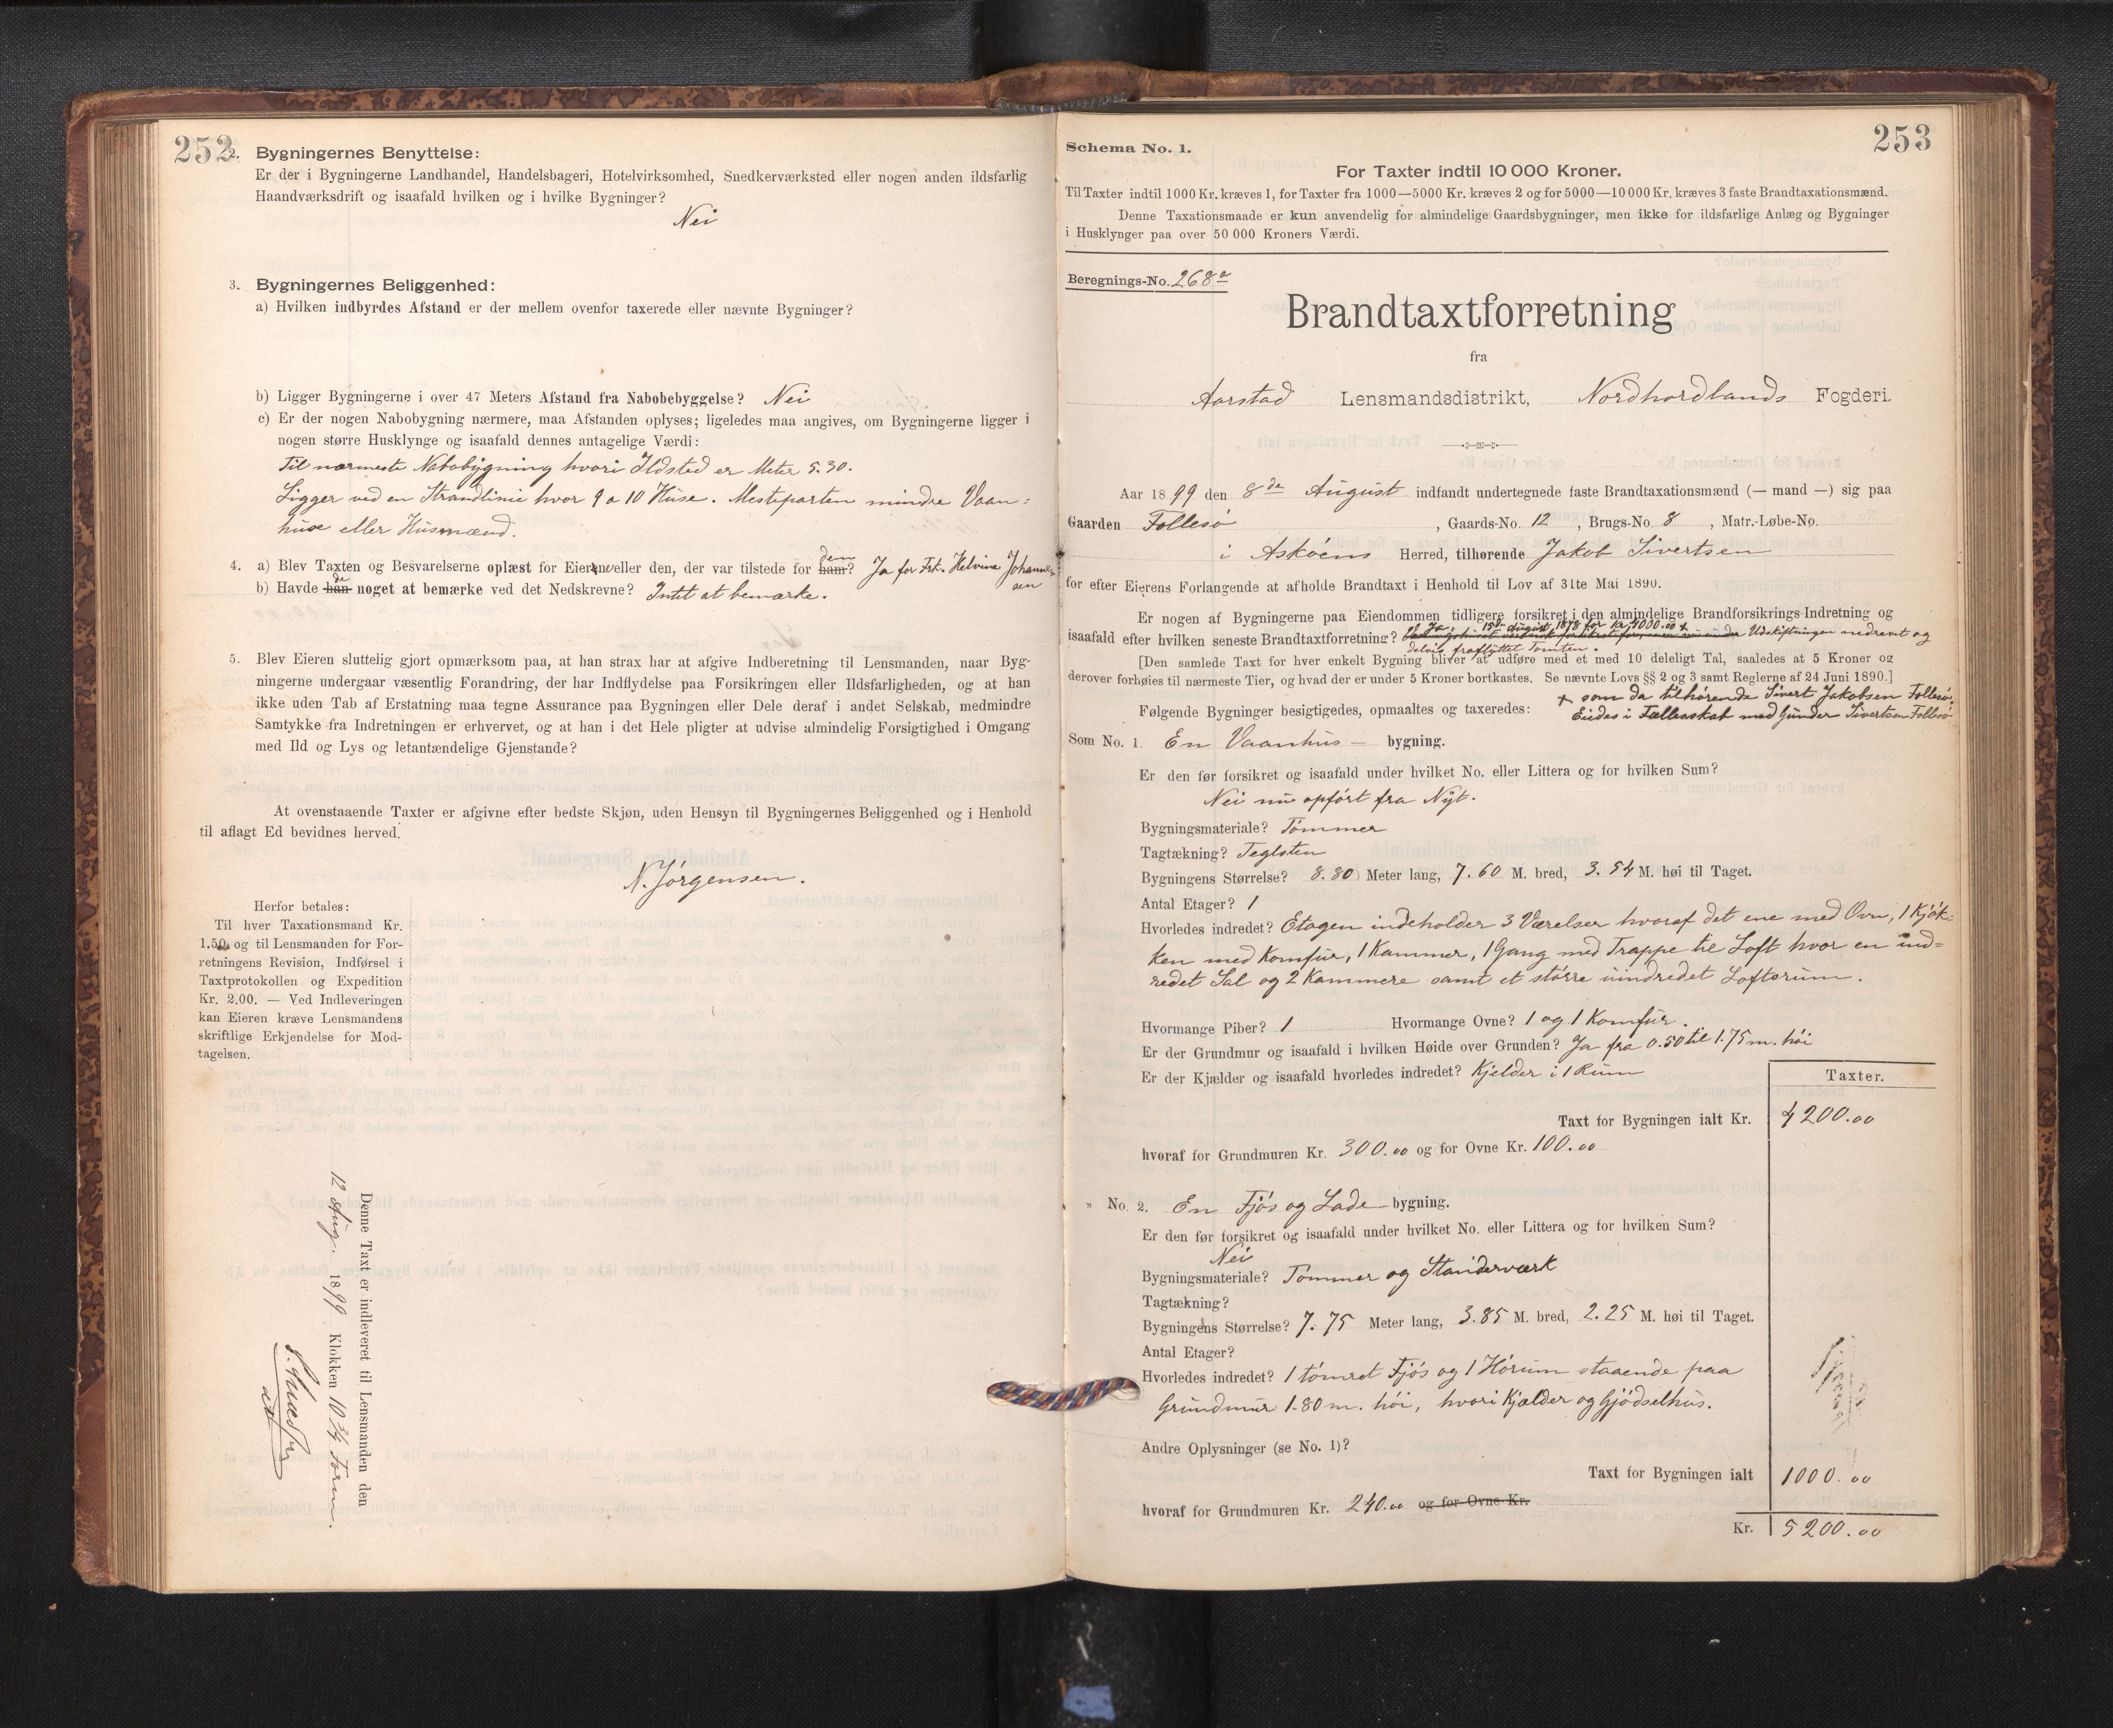 252
2. Bygningernes Benyttelse:
Er der i Bygningerne Landhandel, Handelsbageri, Hotelvirksomhed, Snedkerværksted eller nogen anden ildsfarlig
Haandværksdrift og isaafald hvilken og i hvilke Bygninger?
Nei
3. Bygningernes Beliggenhed:
a) Hvilken indbyrdes Afstand er der mellem ovenfor taxerede eller nævnte Bygninger?
b) Ligger Bygningerne i over 47 Meters Afstand fra Nabobebyggelse? Nei
c) Er der nogen Nabobygning nærmere, maa Afstanden oplyses; ligeledes maa angives, om Bygningerne ligger i
nogen større Husklynge og isaafald dennes antagelige Værdi:
Til nærmeste Nabobygning hvori Ildsted er Meter 5.30.
Ligger ved en Strandlinie hvor 9 a 10 Huse. Mesteparten mindre Vaan-
huse eller Husmænd.
4. a) Blev Taxten og Besvarelserne oplæst for Eierne eller den, der var tilstede for ham? dem Ja for Frk. Helvine Johannes-
sen
b) Havde han de noget at bemærke ved det Nedskrevne? Intet at bemærke.
5. Blev Eieren sluttelig gjort opmærksom paa, at han strax har at afgive Indberetning til Lensmanden, naar Byg-
ningerne undergaar væsentlig Forandring, der har Indflydelse paa Forsikringen eller Ildsfarligheden, og at han
ikke uden Tab af Erstatning maa tegne Assurance paa Bygningen eller Dele deraf i andet Selskab, medmindre
Samtykke fra Indretningen er erhvervet, og at han i det Hele pligter at udvise almindelig Forsigtighed i Omgang
med Ild og Lys og letantændelige Gjenstande?
At ovenstaaende Taxter er afgivne efter bedste Skjøn, uden Hensyn til Bygningernes Beliggenhed og i Henhold
til aflagt Ed bevidnes herved.
N. Jørgensen.
Herfor betales:
Til hver Taxationsmand Kr.
1.50 og til Lensmanden for For-
retningens Revision, Indførsel i
Taxtprotokollen og Expedition
Kr. 2.00. — Ved Indleveringen
kan Eieren kræve Lensmandens
skriftlige Erkjendelse for Mod-
tagelsen.
Denne Taxt er indleveret til Lensmanden den
12 Aug. 1899 Klokken 10 3/4 Form.
253
Schema No. 1.
For Taxter indtil 10 000 Kroner.
Til Taxter indtil 1000 Kr. kræves 1, for Taxter fra 1000—5000 Kr. kræves 2 og for 5000—10 000 Kr. kræves 3 faste Brandtaxationsmænd.
Denne Taxationsmaade er kun anvendelig for almindelige Gaardsbygninger, men ikke for ildsfarlige Anlæg og Bygninger
i Husklynger paa over 50 000 Kroners Værdi.
Beregnings-No. 268a
Brandtaxtforretning
fra
Aarstad Lensmandsdistrikt, Nordhordlands Fogderi.
Aar 1899 den 8de August indfandt undertegnede faste Brandtaxationsmænd (— mand —) sig paa
Gaarden Follesø, Gaards-No. 12, Brugs-No. 8, Matr.-Løbe-No.
i Askøens Herred, tilhørende Jakob Sivertsen
for efter Eierens Forlangende at afholde Brandtaxt i Henhold til Lov af 31te Mai 1890.
Er nogen af Bygningerne paa Eiendommen tidligere forsikret i den almindelige Brandforsikrings-Indretning og
Ja, 15de August 1878 for Kr 4000.00 +
isaafald efter hvilken seneste Brandtaxtforretning? Udskiftningen nedrevet og
delvis fraflyttet Tomten.
[Den samlede Taxt for hver enkelt Bygning bliver at udføre med et med 10 deleligt Tal, saaledes at 5 Kroner og
derover forhøies til nærmeste Tier, og hvad der er under 5 Kroner bortkastes. Se nævnte Lovs §§ 2 og 3 samt Reglerne af 24 Juni 1890.]
+ som da tilhørende Sivert Jakobsen Follesø.
Følgende Bygninger besigtigedes, opmaaltes og taxeredes: Eiedes i Fællesskab med Gunder Sivertsen Follesø
Som No. 1. En Vaanhus- bygning.
Er den før forsikret og isaafald under hvilket No. eller Littera og for hvilken Sum?
Nei nu opført fra Nyt.
Bygningsmateriale? Tømmer
Tagtækning? Teglsten
Bygningens Størrelse? 8.80 Meter lang, 7.60 M. bred, 3.54 M. høi til Taget.
Antal Etager? 1
Hvorledes indredet? Etagen indeholder 3 Værelser hvoraf det ene med Ovn, 1 Kjøk-
ken med Komfur, 1 Kammer, 1 Gang med Trappe til Loft hvor en ind-
redet Sal og 2 Kammere samt et større uindredet Loftsrum.
Hvormange Piber? 1 Hvormange Ovne? 1 og 1 Komfur.
Er der Grundmur og isaafald i hvilken Høide over Grunden? Ja fra 0.50 til 1.75 m. høi
Er der Kjælder og isaafald hvorledes indredet? Kjelder i 1 Rum
Taxter.
Taxt for Bygningen ialt Kr. 4200.00
hvoraf for Grundmuren Kr. 300.00 og for Ovne Kr. 100.00
" No. 2. En Fjøs og Lade- bygning.
Er den før forsikret og isaafald under hvilket No. eller Littera og for hvilken Sum?
Nei
Bygningsmateriale? Tømmer og Standerværk
Tagtækning?
Bygningens Størrelse? 7.75 Meter lang, 3.85 M. bred, 2.25 M. høi til Taget.
Antal Etager?
Hvorledes indredet? 1 tømret Fjøs og 1 Hørum staaende paa
Grundmur 1.80 m. høi, hvori Kjælder og Gjødselhus.
Andre Oplysninger (se No. 1)?
Taxt for Bygningen ialt 1000.00
hvoraf for Grundmuren Kr. 240.00 og for Ovne Kr.
Kr. 5200.00